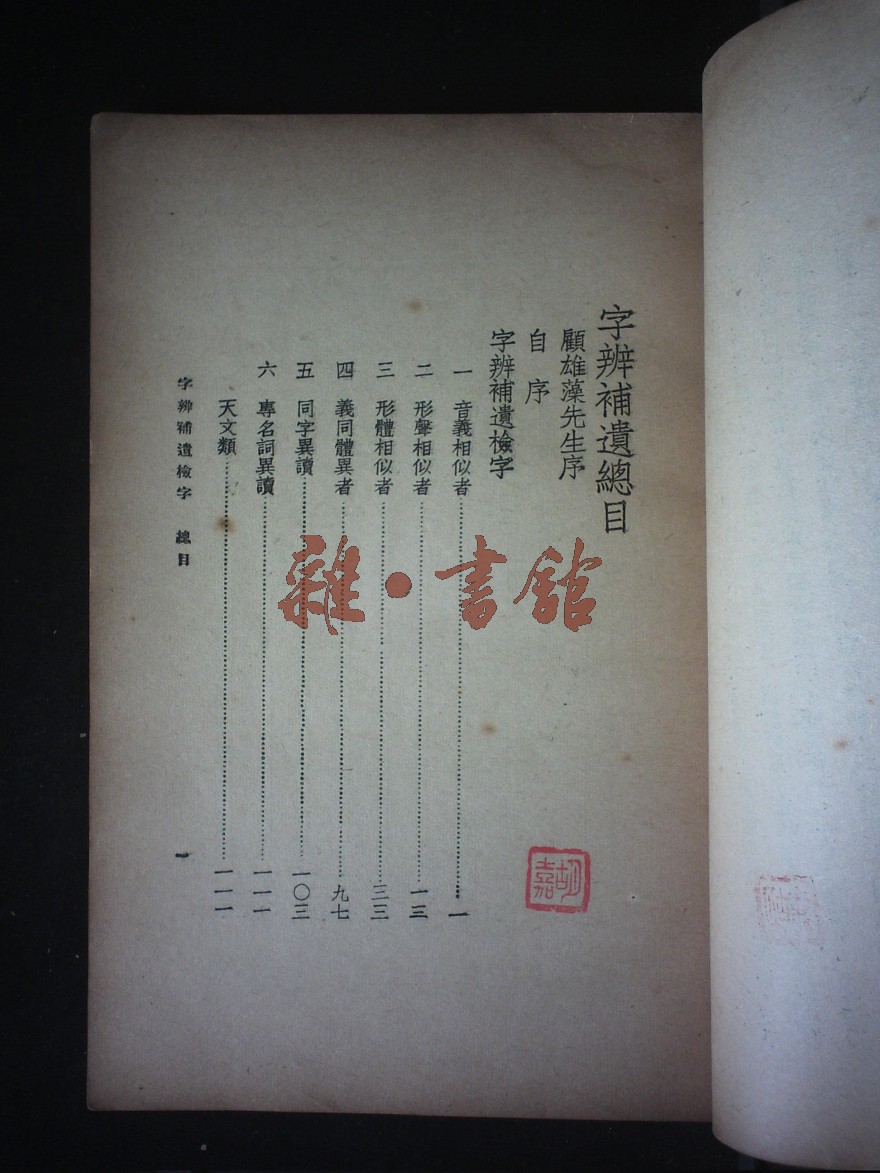 字辨補遺總目
顧雄藻先生序
自序
字辨補遺檢字
一 音義相似者……一
二 形聲相似者……一三
三 形體相似者……三三
四 義同體異者……九七
五 同字異讀……一〇三
六 專名詞異讀……一一一
天文類……一一一
字辨補遺檢字 總目 一
雜·書館
胡嘉